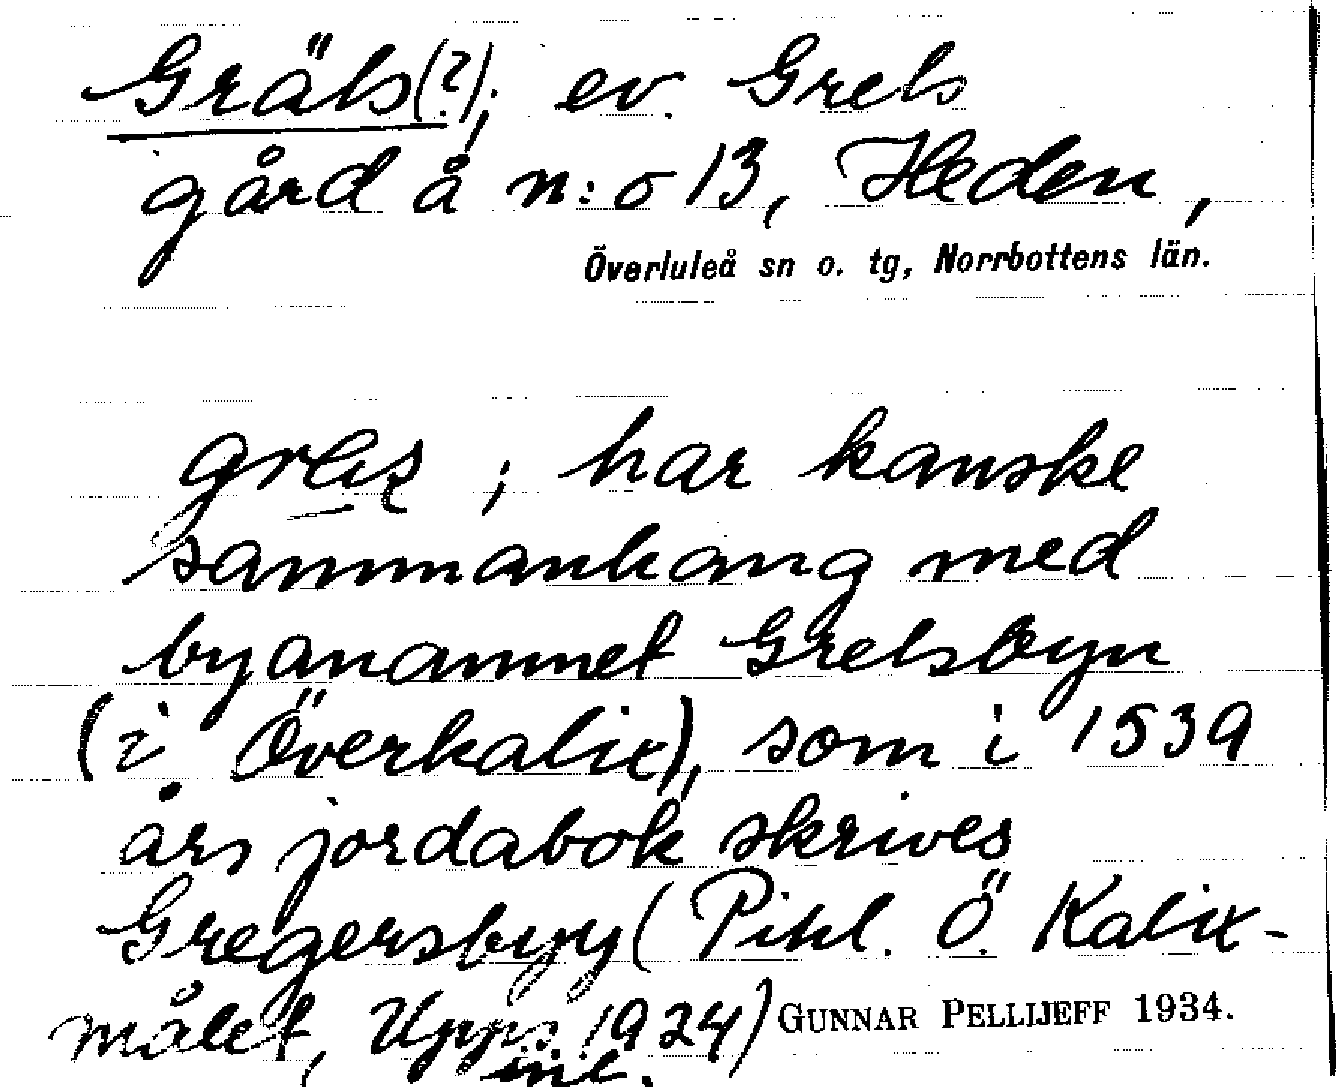 Gräls(?); ev. Grels
gård å n:o 13, Heden,
Överluleå sn o. tg, Norrbottens län.
har kanske
sammanhang med
bynamnet Grelsbyn
(i Överkalix), som i 1539
års jordabok skrives
Gregersbyy (Pihl. Ö. Kalix-
målet, Upps. 1924)
GUNNAR PELLIJEFF 1934.
inl.